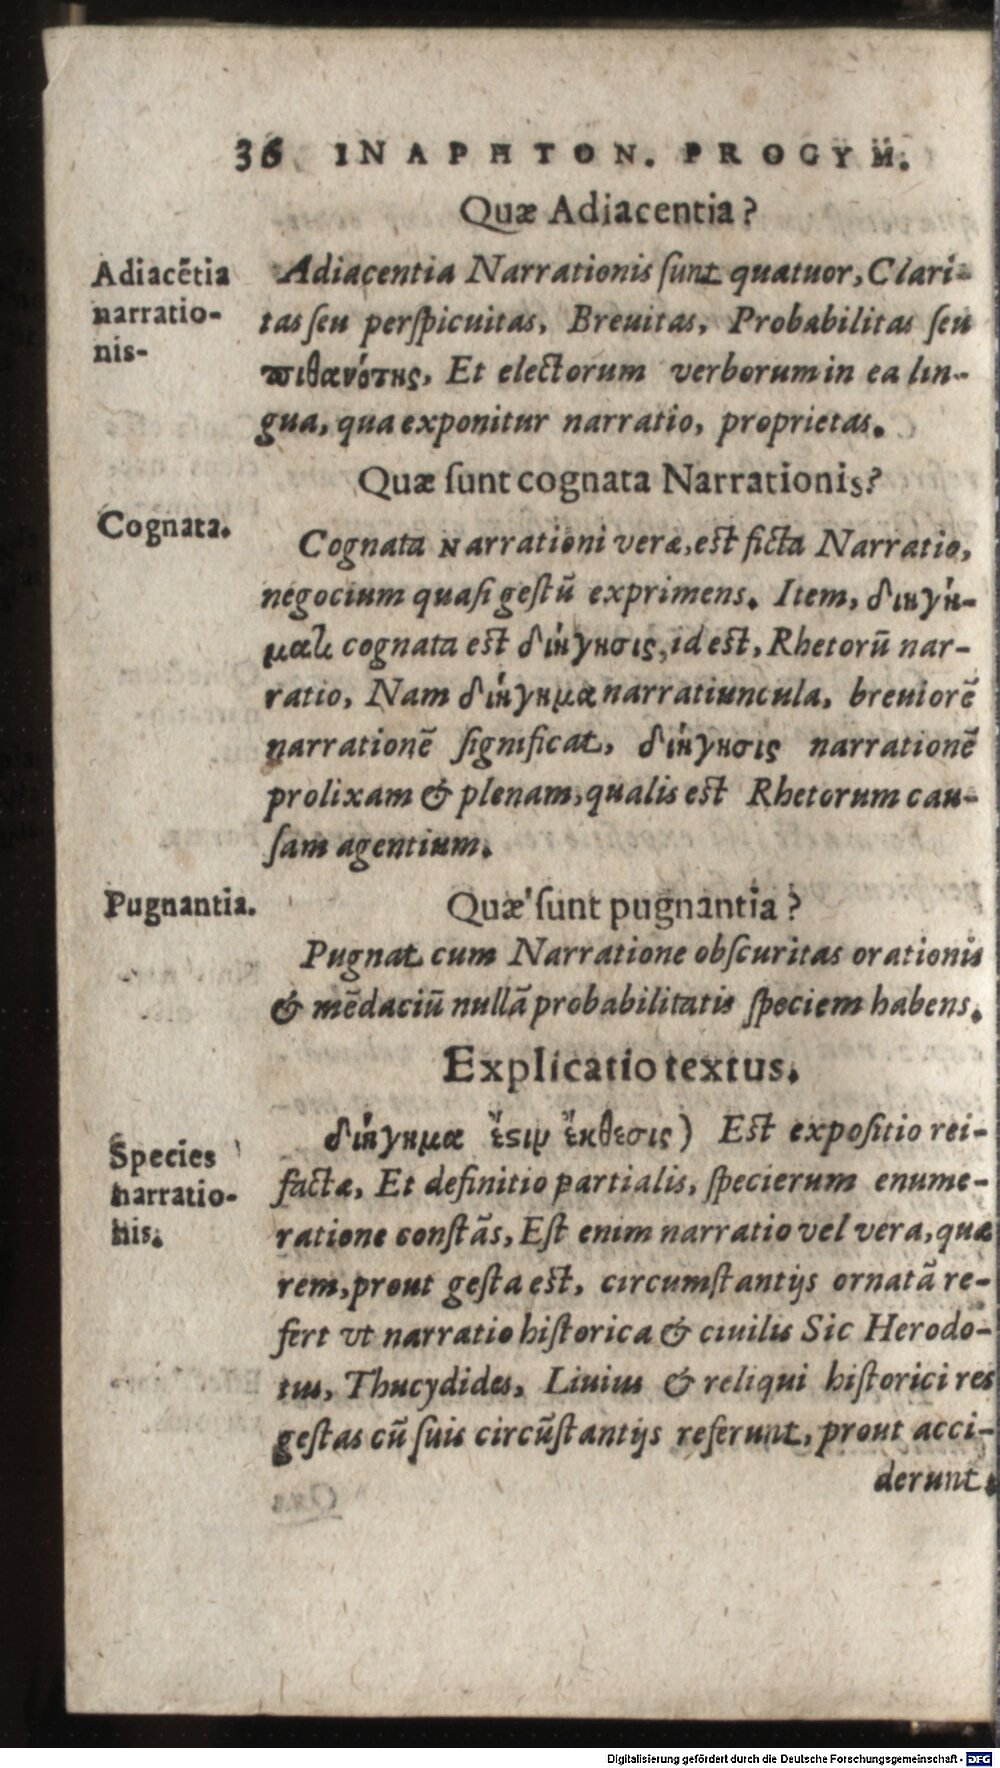 36 IN APHTON. PROGYM.
Quæ Adiacentia?
Adiacẽtia
narratio-
nis-
Adiacentia Narrationis ſunt quatuor, Clari-
tas ſeu perſpicuitas, Breuitas, Probabilitas ſeu
πιθανότης, Et electorum verborum in ea lin-
gua, qua exponitur narratio, proprietas.
Quæ ſunt cognata Narrationis?
Cognata.
Cognata Narrationi veræ, eſt ficta Narratio,
negocium quaſi geſtũ exprimens. Item, διηγή-
ματι cognata eſt διήγησις, id eſt, Rhetorũ nar-
ratio, Nam διήγημα narratiuncula, breuiorẽ
narrationẽ ſignificat, διήγησις narrationẽ
prolixam & plenam, qualis eſt Rhetorum cau-
ſam agentium.
Pugnantia.
Quæ ſunt pugnantia?
Pugnat cum Narratione obſcuritas orationis
& mẽdaciũ nullã probabilitatis ſpeciem habens.
Explicatio textus.
Species
narratio-
nis.
διήγημα ἔϛιν ἔκθεσις) Eſt expoſitio rei-
factæ, Et definitio partialis, ſpecierum enume-
ratione conſtãs, Eſt enim narratio vel vera, quæ
rem, prout geſta eſt, circumſtantijs ornatã re-
fert vt narratio hiſtorica & ciuilis Sic Herodo-
tus, Thucydides, Liuius & reliqui hiſtorici res
geſtas cũ ſuis circũſtantijs referunt, prout acci-
derunt.
Digitalisierung gefördert durch die Deutsche Forschungsgemeinschaft - DFG